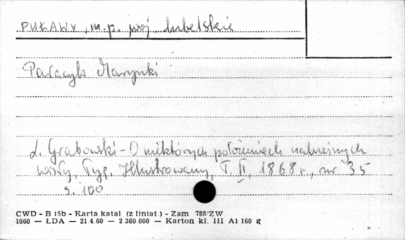 PUŁAWY, m.p. woj. lubelskie
Pałacyk Marynki
L. Grabowski - O niektórych położeniach nadwiślnych
Wisły, Tyg. Illustrowany, T. II, 1868 r., nr 35
s. 100
CWD - B 15b - Karta katal (z liniat.) - Zam 788/ZW
1060 — ŁDA — 21 4.60 — 2 360.000 — Karton kl. III A1 160 g